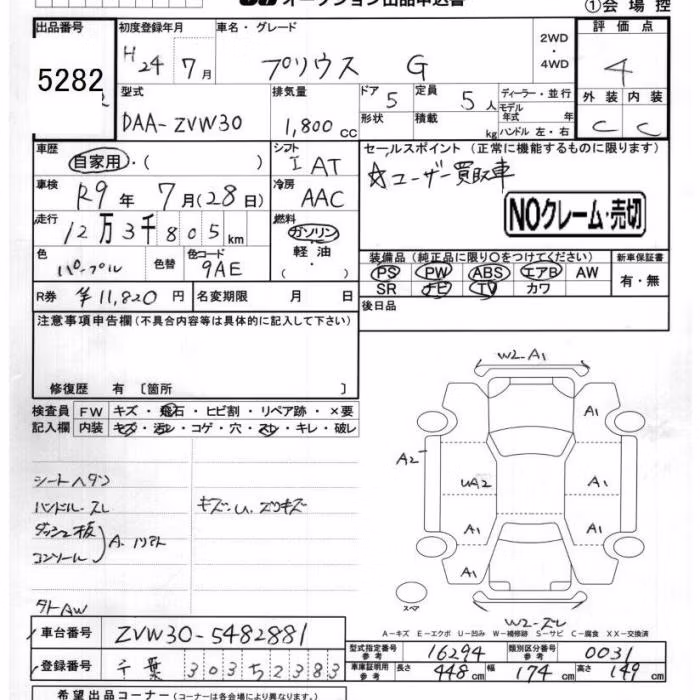 オークション出品申込書
①会場控
出品番号
5282
初度登録年月
H24 7月
車名・グレード
プリウス G
2WD
・
4WD
評価点
4
外装 内装
C C
型式
DAA-ZVW30
排気量
1,800 cc
ドア 5
形状
定員 5人
積載 kg
ディーラー・並行
モデル年式 年
ハンドル 左・右
車歴
自家用・( )
シフト
I AT
セールスポイント(正常に機能するものに限ります)
☆ユーザー買取車
NOクレーム・売切
車検
R9年 7月(28日)
冷房
AAC
走行
12万3千805km
燃料
ガソリン
軽油
( ・ )
色
パープル
色替
色コード
9AE
装備品(純正品に限り○をつけてください)
PS PW ABS エアB AW
SR ナビ TV カワ
新車保証書
有・無
R券 ¥11,820円
名変期限 月 日
後日品
注意事項申告欄(不具合内容等は具体的に記入して下さい)
修復歴 有 〔箇所 〕
検査員 FW キズ・飛石・ヒビ割・リペア跡・×要
記入欄 内装 キズ・汚レ・コゲ・穴・スレ・キレ・破レ
シートヘタリ
ハンドル.スレ
ダッシュ板
コンソール
キズ.U.スリキズ
タトAW
W2-A1
A1
A2
UA2
A1
A1
A1
A1
スペア
W2-スレ
A-キズ E-エクボ U-凹み W-補修跡 S-サビ C-腐食 XX-交換済
車台番号 ZVW30-5482881
登録番号 千葉 303 52383
型式指定番号 参考 16294
類別区分番号 参考 0031
車庫証明用 参考 長さ 448cm 幅 174cm 高さ 149cm
希望出品コーナー(コーナーは各会場により異なります。)